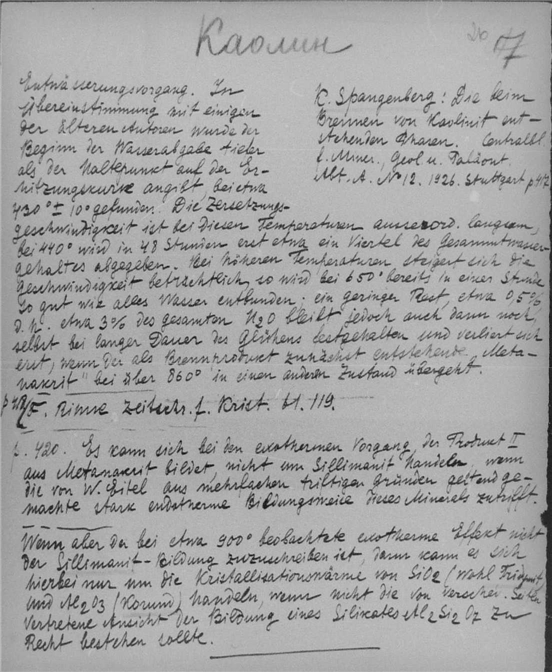 Каолин
20
17
Entwässerungsvorgang. In
Übereinstimmung mit einigen
der älteren Autoren wurde der
Beginn der Wasserabgabe tiefer
als der Haltepunkt auf der Er-
hitzungskurve angibt bei etwa
430° ± 10° gefunden. Die Zersetzungs-
K. Spangenberg: Die beim
Brennen von Kaolinit ent-
stehenden Phasen. Centralbl.
f. Miner., Geol. u. Paläont.
Abt. A. № 12. 1926. Stuttgart p 417
geschwindigkeit ist bei diesen Temperaturen ausserord. langsam,
bei 440° wird in 48 Stunden erst etwa ein Viertel des Gesammtwasser-
gehaltes abgegeben. Bei höheren Temperaturen steigert sich die
Geschwindigkeit beträchtlich, so wird bei 650° bereits in einer Stunde
so gut wie alles Wasser entbunden; ein geringer Rest, etwa 0,5%
d. h. etwa 3% des gesamten H2O bleibt jedoch auch dann noch,
selbst bei langer Dauer des Glühens festgehalten und verliert sich
erst, wenn der als Brennprodukt zunächst entstehende „Meta-
nakrit" bei über 860° in einen anderen Zustand übergeht.
F. Rinne Zeitschr. f. Krist. 61. 119.
p. 420. Es kann sich bei den exothermen Vorgang, der Produkt II
aus Metanakrit bildet, nicht um Sillimanit handeln, wenn
die von W. Eitel aus mehrfachen triftigen Gründen geltend ge-
machte stark endotherme Bildungsweise dieses Minerals zutrifft.
Wenn aber der bei etwa 900° beobachtete exotherme Effekt nicht
der Sillimanit-Bildung zuzuschreiben ist, dann kann es sich
hierbei nur um die Kristallisationswärme von SiO2 (wohl Tridymit)
und Al2O3 (Korund) handeln, wenn nicht die von verschied. Seiten
vertretene Ansicht der Bildung eines Silikates Al2Si2O7 zu
Recht bestehen sollte.